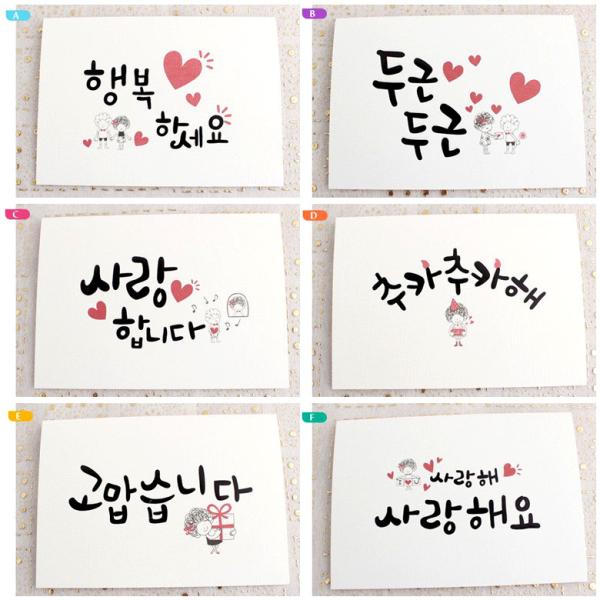 A
행복
하세요
B
두근
두근
C
사랑
합니다
D
추카추카해
E
고맙습니다
F
I ♥ U
사랑해
사랑해요